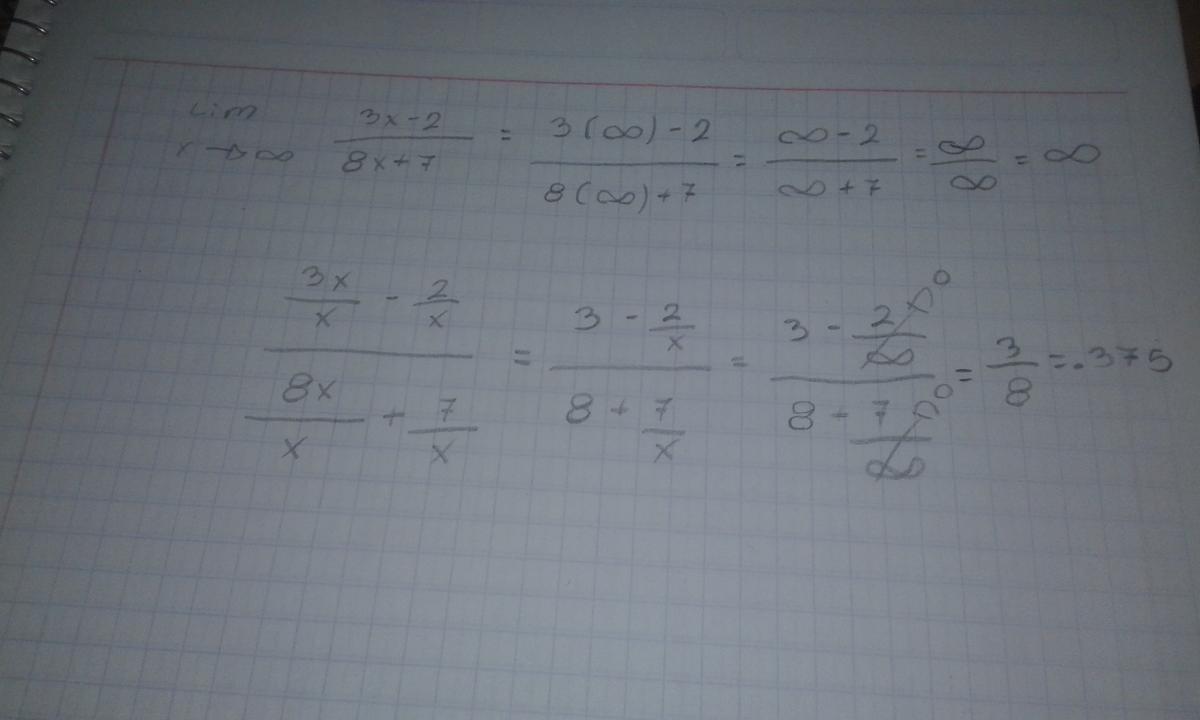 Lim x→∞ (3x-2)/(8x+7) = (3(∞)-2)/(8(∞)+7) = (∞-2)/(∞+7) = ∞/∞ = ∞
(3x/x - 2/x)/(8x/x + 7/x) = (3 - 2/x)/(8 + 7/x) = (3 - 2/∞→0)/(8 - 7/∞→0) = 3/8 = .375